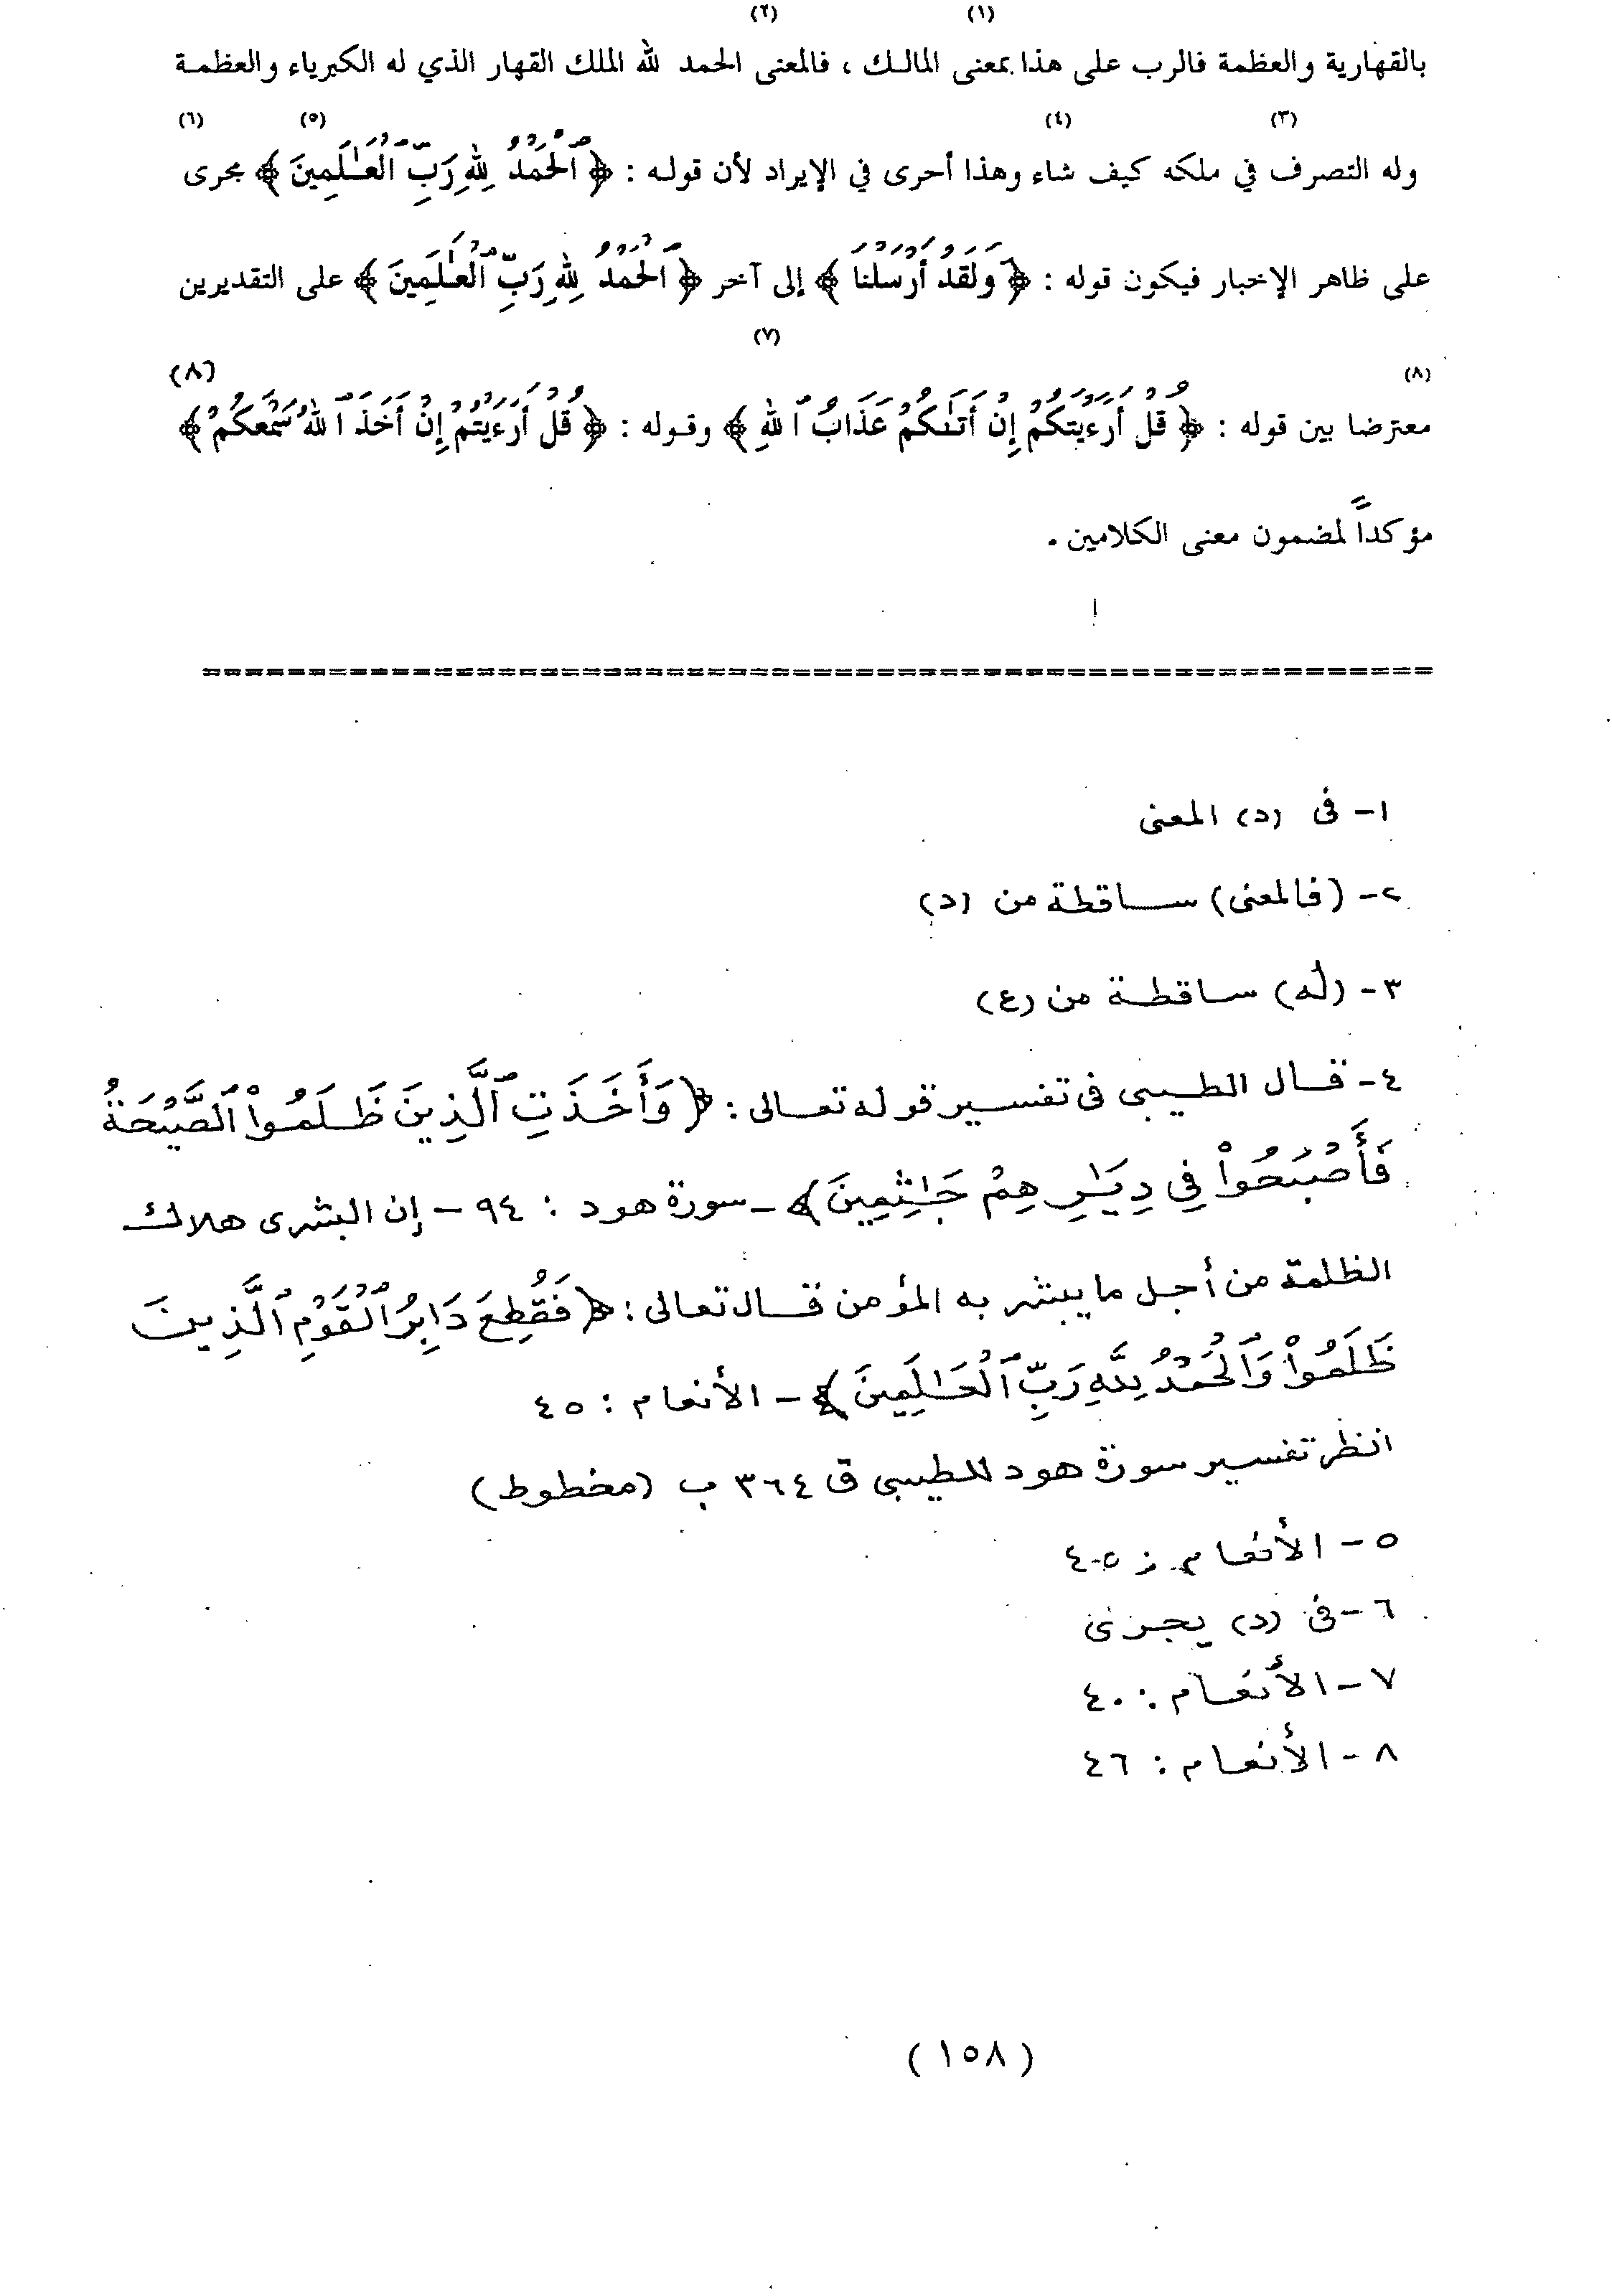 (١) (٢)
بالقهارية والعظمة فالرب على هذا بمعنى المالك ، فالمعنى الحمد لله الملك القهار الذي له الكبرياء والعظمة
(٣) (٤) (٥) (٦)
وله التصرف في ملكه كيف شاء وهذا أحرى في الإيراد لأن قوله : ﴿ ٱلْحَمْدُ لِلَّهِ رَبِّ ٱلْعَٰلَمِينَ ﴾ مجرى
على ظاهر الإخبار فيكون قوله : ﴿ وَلَقَدْ أَرْسَلْنَا ﴾ إلى آخر ﴿ ٱلْحَمْدُ لِلَّهِ رَبِّ ٱلْعَٰلَمِينَ ﴾ على التقديرين
(٧)
(٨) (٨)
معترضا بين قوله : ﴿ قُلْ أَرَءَيْتَكُمْ إِنْ أَتَىٰكُمْ عَذَابُ ٱللَّهِ ﴾ وقوله : ﴿ قُلْ أَرَءَيْتُمْ إِنْ أَخَذَ ٱللَّهُ سَمْعَكُمْ ﴾
مؤكداً لمضمون معنى الكلامين .
١- فى (د) المعنى
٢- (فالمعنى) ساقطة من (د)
٣- (له) ساقطة من (ع)
٤- قال الطيبى فى تفسير قوله تعالى : ﴿ وَأَخَذَتِ ٱلَّذِينَ ظَلَمُوا۟ ٱلصَّيْحَةُ
فَأَصْبَحُوا۟ فِي دِيَٰرِهِمْ جَٰثِمِينَ ﴾ - سورة هود : ٩٤ - إن البشرى هلاك
الظلمة من أجل ما يبشر به المؤمن قال تعالى : ﴿ فَقُطِعَ دَابِرُ ٱلْقَوْمِ ٱلَّذِينَ
ظَلَمُوا۟ وَٱلْحَمْدُ لِلَّهِ رَبِّ ٱلْعَٰلَمِينَ ﴾ - الأنعام : ٤٥
انظر تفسير سورة هود للطيبى ق ٣٦٤ ب (مخطوط)
٥- الأنعام : ٤٥
٦- فى (د) يجزى
٧- الأنعام : ٤٠
٨- الأنعام : ٤٦
(١٥٨)